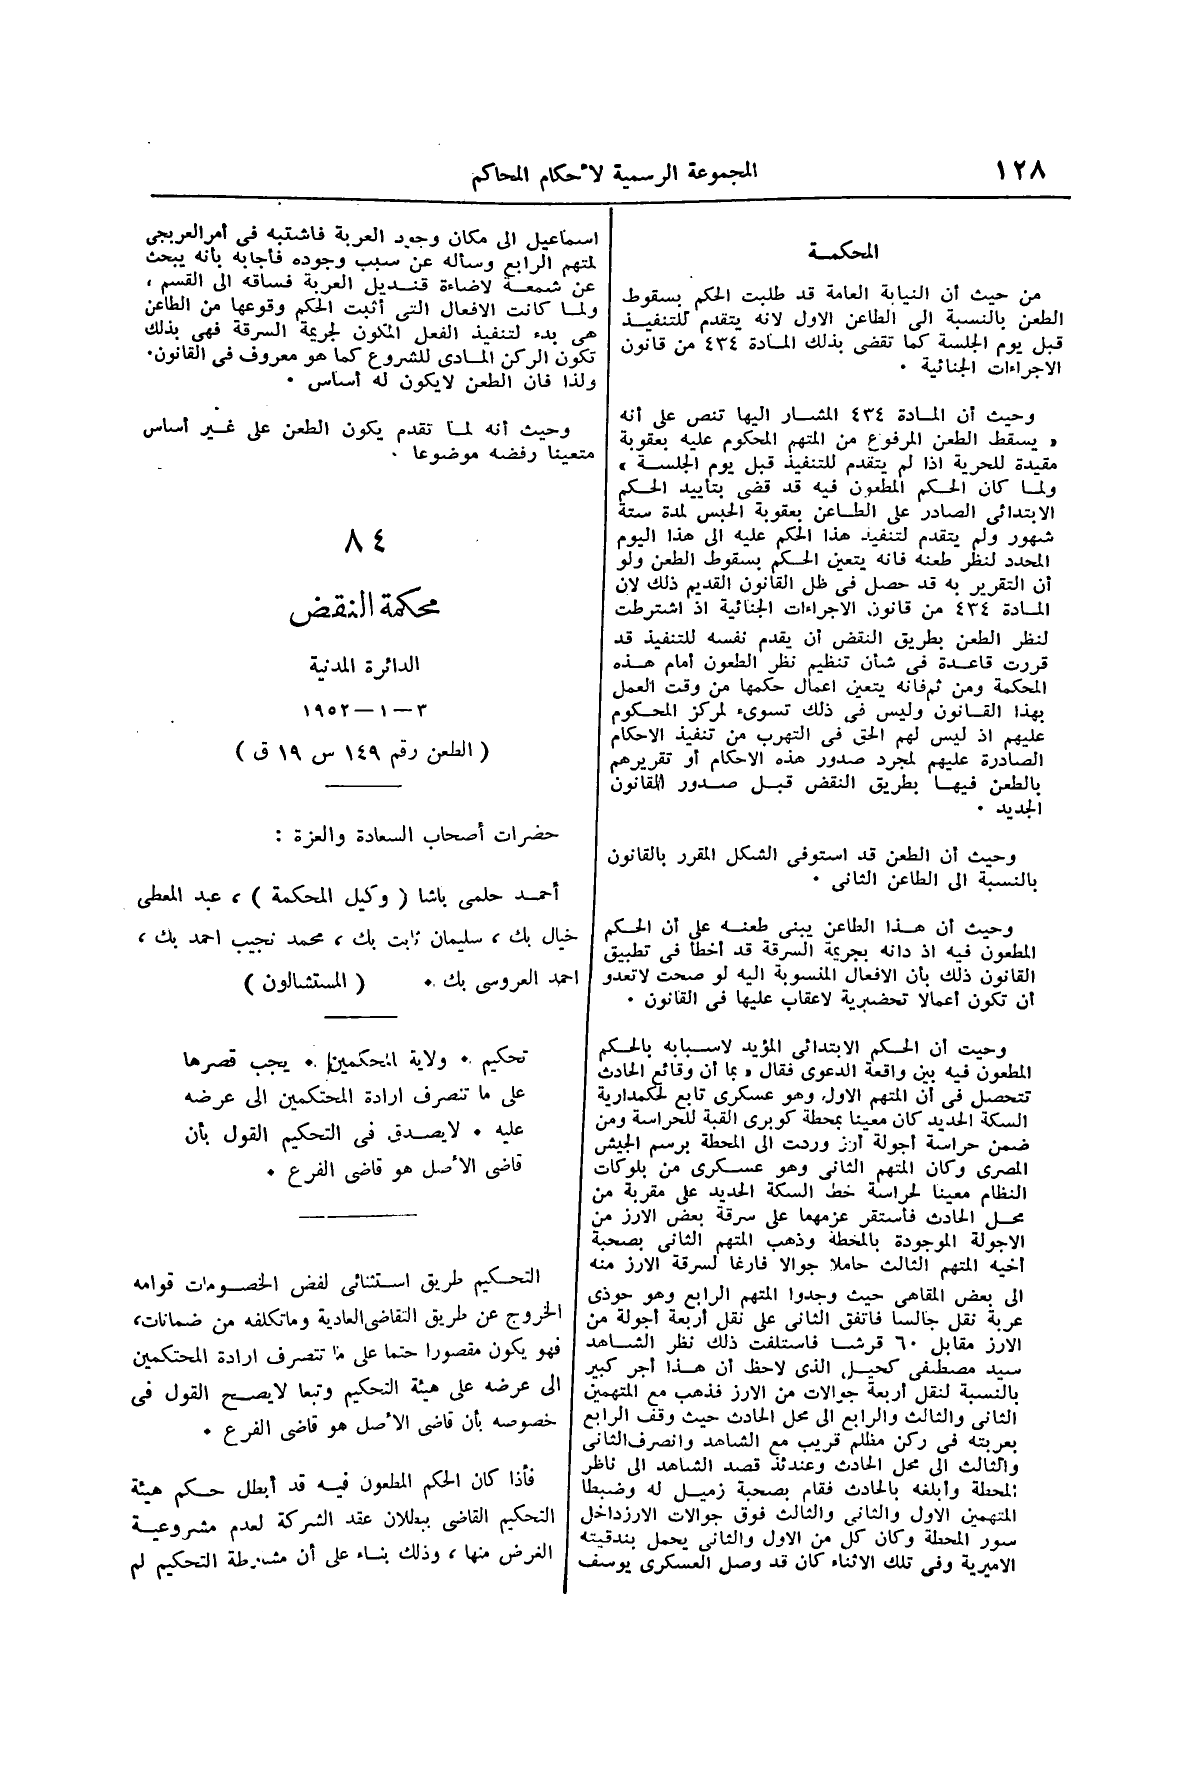 ١٢٨
المجموعة الرسمية لأحكام المحاكم
المحكمة
من حيث أن النيابة العامة قد طلبت الحكم بسقوط
الطعن بالنسبة الى الطاعن الاول لانه يتقدم للتنفيذ
قبل يوم الجلسة كما تقضى بذلك المادة ٤٣٤ من قانون
الاجراءات الجنائية .
وحيث أن المادة ٤٣٤ المشار اليها تنص على أنه
« يسقط الطعن المرفوع من المتهم المحكوم عليه بعقوبة
مقيدة للحرية اذا لم يتقدم للتنفيذ قبل يوم الجلسة »
ولما كان الحكم المطعون فيه قد قضى بتأييد الحكم
الابتدائى الصادر على الطاعن بعقوبة الحبس لمدة ستة
شهور ولم يتقدم لتنفيذ هذا الحكم عليه الى هذا اليوم
المحدد لنظر طعنه فانه يتعين الحكم بسقوط الطعن ولو
أن التقرير به قد حصل فى ظل القانون القديم ذلك لان
المادة ٤٣٤ من قانون الاجراءات الجنائية اذ اشترطت
لنظر الطعن بطريق النقض أن يقدم نفسه للتنفيذ قد
قررت قاعدة فى شأن تنظيم نظر الطعون أمام هذه
المحكمة ومن ثم فانه يتعين اعمال حكمها من وقت العمل
بهذا القانون وليس فى ذلك تسوىء لمركز المحكوم
عليهم اذ ليس لهم الحق فى التهرب من تنفيذ الاحكام
الصادرة عليهم لمجرد صدور هذه الاحكام أو تقريرهم
بالطعن فيها بطريق النقض قبل صدور القانون
الجديد .
وحيث أن الطعن قد استوفى الشكل المقرر بالقانون
بالنسبة الى الطاعن الثانى .
وحيث أن هذا الطاعن يبنى طعنه على أن الحكم
المطعون فيه اذ دانه بجريمة السرقة قد أخطأ فى تطبيق
القانون ذلك بأن الافعال المنسوبة اليه لو صحت لاتعدو
أن تكون أعمالا تحضيرية لاعقاب عليها فى القانون .
وحيت أن الحكم الابتدائى المؤيد لاسبابه بالحكم
المطعون فيه بين واقعة الدعوى فقال « بما أن وقائع الحادث
تتحصل فى أن المتهم الاول وهو عسكرى تابع لحكمدارية
السكة الحديد كان معينا بمحطة كوبرى القبة للحراسة ومن
ضمن حراسة أجولة أرز وردت الى المحطة برسم الجيش
المصرى وكان المتهم الثانى وهو عسكرى من بلوكات
النظام معينا لحراسة خط السكة الحديد على مقربة من
محل الحادث فأستقر عزمهما على سرقة بعض الارز من
الاجولة الموجودة بالمخطة وذهب المتهم الثانى بصحبة
أخيه المتهم الثالث حاملا جوالا فارغا لسرقة الارز منه
الى بعض المقاهى حيث وجدوا المتهم الرابع وهو حوذى
عربة نقل جالسا فاتفق الثانى على نقل أربعة أجولة من
الارز مقابل ٦٠ قرشا فاستلفت ذلك نظر الشاهد
سيد مصطفى كحيل الذى لاحظ أن هذا أجر كبير
بالنسبة لنقل أربعة جوالات من الارز فذهب مع المتهمين
الثانى والثالث والرابع الى محل الحادث حيث وقف الرابع
بعربته فى ركن مظلم قريب مع الشاهد وانصرف الثانى
والثالث الى محل الحادث وعندئذ قصد الشاهد الى ناظر
المحطة وأبلغه بالحادث فقام بصحبة زميل له وضبطا
المتهمين الاول والثانى والثالث فوق جوالات الارز داخل
سور المحطة وكان كل من الاول والثانى يحمل بندقيته
الاميرية وفى تلك الاثناء كان قد وصل العسكرى يوسف
اسماعيل الى مكان وجود العربة فاشتبه فى أمر العربجى
لمتهم الرابع وسأله عن سبب وجوده فأجابه بأنه يبحث
عن شمعة لاضاءة قنديل العربة فساقه الى القسم ،
ولما كانت الافعال التى أثبت الحكم وقوعها من الطاعن
هى بدء لتنفيذ الفعل المكون لجريمة السرقة فهى بذلك
تكون الركن المادى للشروع كما هو معروف فى القانون.
ولذا فان الطعن لايكون له أساس .
وحيث أنه لما تقدم يكون الطعن على غير أساس
متعينا رفضه موضوعا .
٨٤
محكمة النقض
الدائرة المدنية
٣-١-١٩٥٢
( الطعن رقم ١٤٩ س ١٩ ق )
حضرات أصحاب السعادة والعزة :
أحمد حلمى باشا ( وكيل المحكمة ) ، عبد المعطى
خيال بك ، سليمان ثابت بك ، محمد نجيب احمد بك ،
احمد العروسى بك . ( المستشالون )
تحكيم . ولاية المحكمين . يجب قصرها
على ما تنصرف ارادة المحتكمين الى عرضه
عليه . لايصدق فى التحكيم القول بأن
قاضى الأصل هو قاضى الفرع .
التحكيم طريق استثنائى لفض الخصومات قوامه
الخروج عن طريق التقاضى العادية وماتكلفه من ضمانات،
فهو يكون مقصورا حتما على ما تتصرف ارادة المحتكمين
الى عرضه على هيئة التحكيم وتبعا لايصح القول فى
خصوصه بأن قاضى الأصل هو قاضى الفرع .
فأذا كان الحكم المطعون فيه قد أبطل حكم هيئة
التحكيم القاضى ببطلان عقد الشركة لعدم مشروعية
الغرض منها ، وذلك بناء على أن مشارطة التحكيم لم